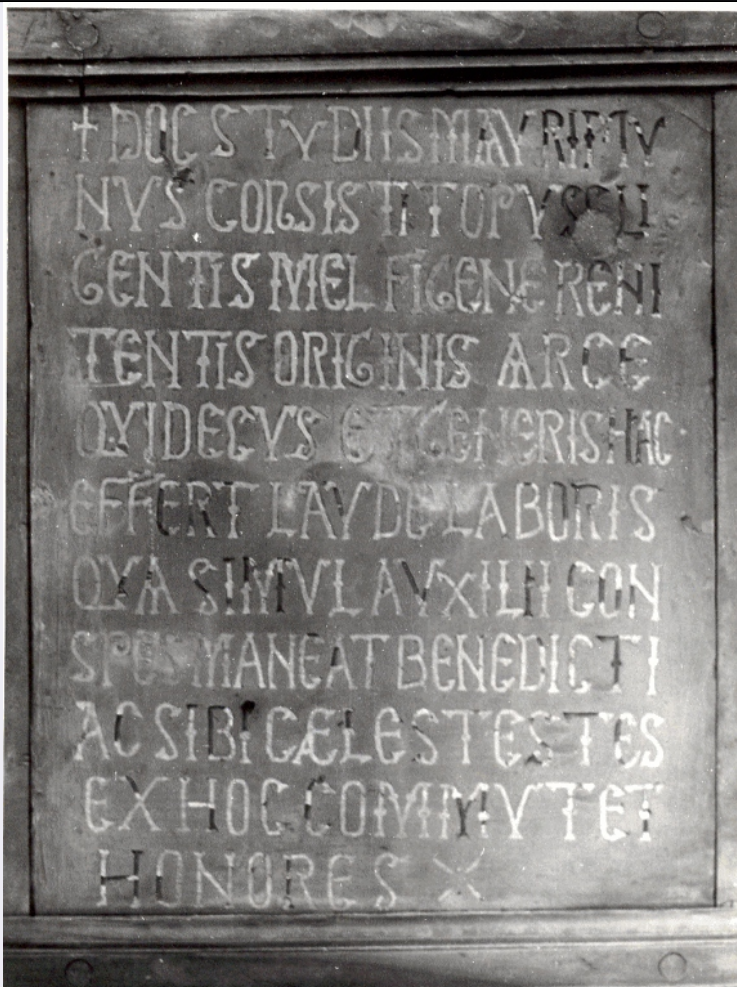 + HOC STVDIIS MAVRI
NVS CONSISTIT OPVS
GENTIS MELFIGENE RENI
TENTIS ORIGINIS ARCE
QVI DECVS ET GENERIS HAC
EFFERT LAVDE LABORIS
QVA SIMVL AVXILII CON
SPES MANEAT BENEDICTI
AC SIBI CÆLESTESTES
EX HOC COMMVTET
HONORES X